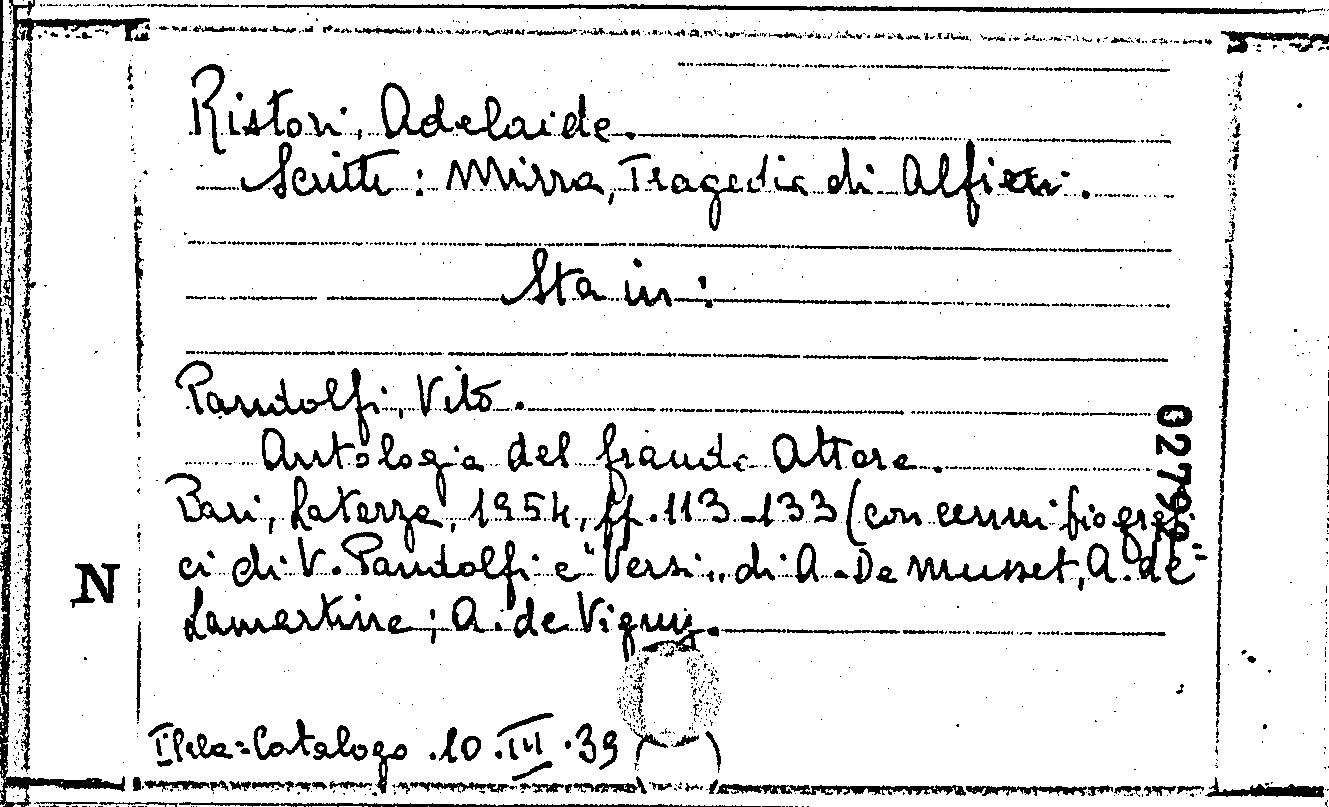 Ristori, Adelaide.
Scritti: Mirra, Tragedia di Alfieri.
Sta in:
Pandolfi, Vito.
Antologia del grande Attore.
Bari, Laterza, 1954, pp. 113-133 (con cenni biografi=
ci di V. Pandolfi e "Versi" di A. De Musset, A. de
Lamartine; A. de Vigny.
N
Catalogo. 10. III. 39